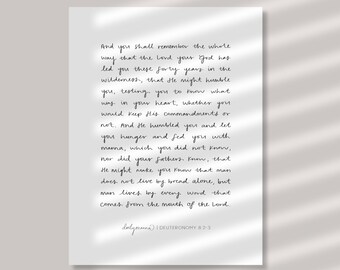 And you shall remember the whole
way that the Lord your God has
led you these forty years in the
wilderness, that He might humble
you, testing you to know what
was in your heart, whether you
would keep His commandments or
not. And He humbled you and let
you hunger and fed you with
manna, which you did not know,
nor did your fathers know, that
He might make you know that man
does not live by bread alone, but
man lives by every word that
comes from the mouth of the Lord.
| DEUTERONOMY 8:2-3